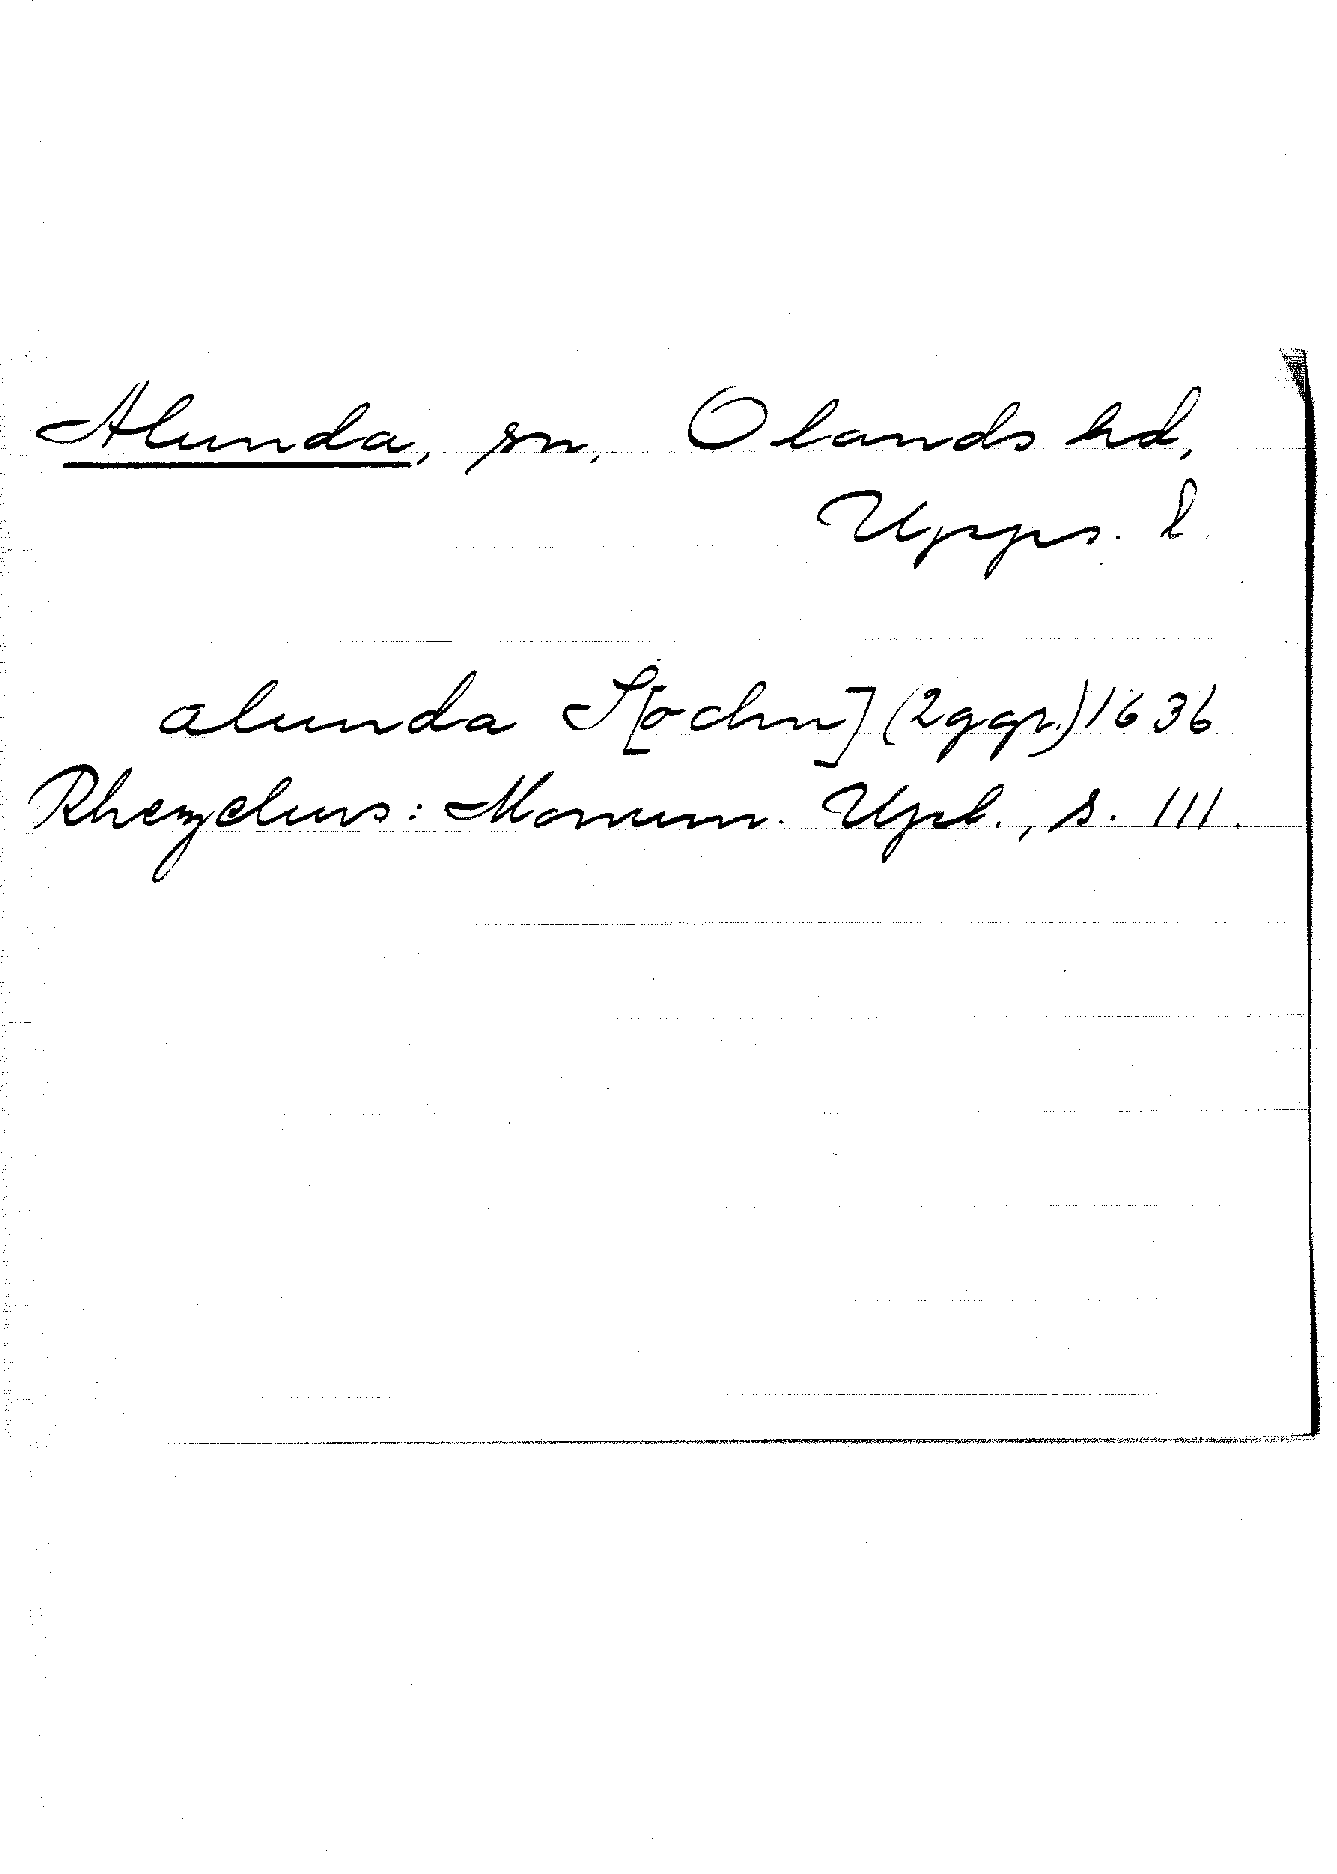 Alunda, sn, Olands hd,
Upps. l.
alunda S[ochn] (2 ggr.) 1636
Rhezelius: Monum. Upl., s. 111.